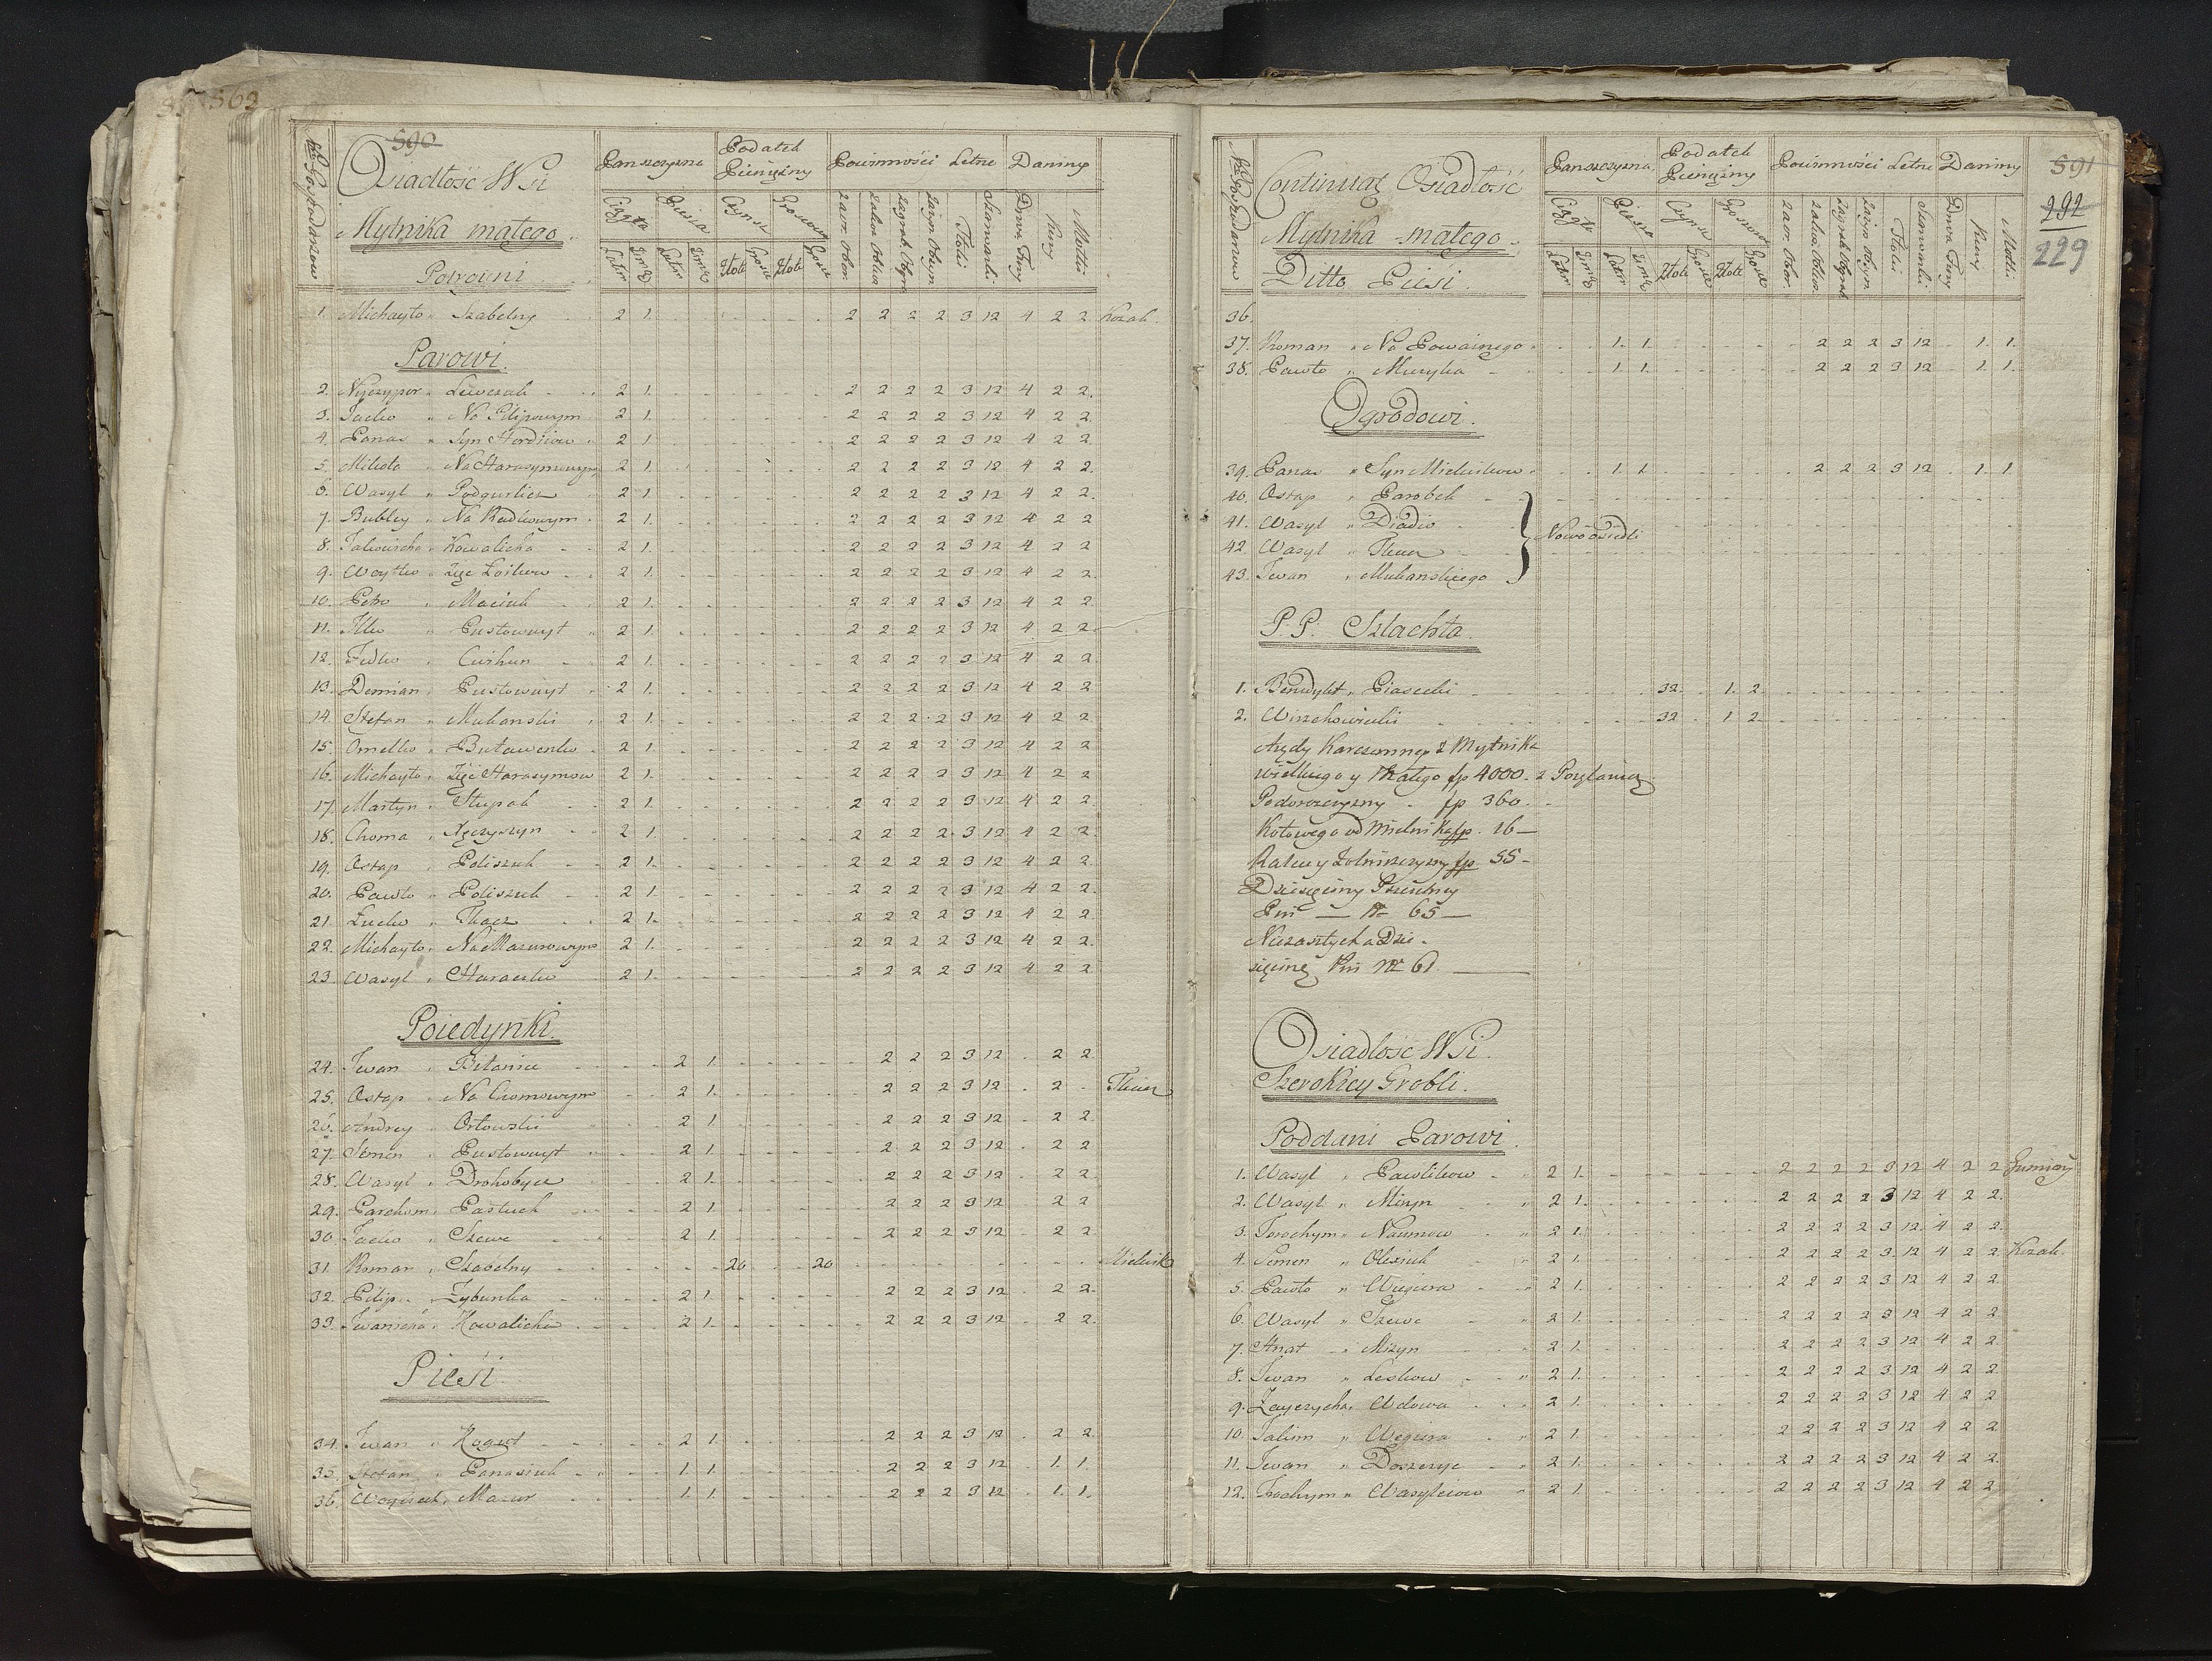 563
590
Nro Gospodarzow
Osiadłość Wsi
Mytnika małego
Potroini
Panszczyzna
Podatek Pieniężny
Powinności Letne
Daniny
Ciągła Piesza Czynsz Groszowe
Latni Zimie Latni Zimie Złote Grosze Złote Grosze
Zaor. Obor. Zabor. Obłucz Zagrab. Obgra Zażyn. Obżyn. Tłoki Szarwarki Drwa Fury Kury Motki
1. Michayło " Szabelny 2 1. 2 2 2 2 3 12 4 2 2 Kozak.
Parowi.
2. Niczypor " Lewczuk 2 1. 2 2 2 2 3 12 4 2 2.
3. Jacko " Na Pilipowym 2 1. 2 2 2 2 3 12 4 2 2
4. Panas " Syn Hordiiow 2 1. 2 2 2 2 3 12 4 2 2
5. Mikoła " Na Harasymowym 2 1. 2 2 2 2 3 12 4 2 2.
6. Wasyl " Podgurlicz 2 1. 2 2 2 2 3 12 4 2 2.
7. Bubley " Na Radkowym 2 1. 2 2 2 2 3 12 4 2 2
8. Jakowicha " Kowalicha 2 1. 2 2 2 2 3 12 4 2 2
9. Woytko " Zięć Loikow 2 1. 2 2 2 2 3 12 4 2 2.
10. Petro " Maciuk 2 1. 2 2 2 2 3 12 4 2 2.
11. Ilko " Pustowuyt 2 1. 2 2 2 2 3 12 4 2 2.
12. Fedko " Curkun 2 1. 2 2 2 2 3 12 4 2 2.
13. Demian " Pustowuyt 2 1. 2 2 2 2 3 12 4 2 2
14. Stefan " Mukanski 2 1. 2 2 2 2 3 12 4 2 2
15. Omelko " Butawenko 2 1. 2 2 2 2 3 12 4 2 2
16. Michayło " Zięć Harasymow 2 1. 2 2 2 2 3 12 4 2 2
17. Martyn " Stupak 2 1. 2 2 2 2 3 12 4 2 2.
18. Choma " 2 1. 2 2 2 2 3 12 4 2 2.
19. Ostap " Poliszuk 2 1. 2 2 2 2 3 12 4 2 2
20. Pawło " Poliszuk 2 1. 2 2 2 2 3 12 4 2 2.
21. Lucko " Tkacz 2 1. 2 2 2 2 3 12 4 2 2.
22. Michayło " Na Mazurowym 2 1. 2 2 2 2 3 12 4 2 2.
23. Wasyl " 2 1. 2 2 2 2 3 12 4 2 2
Poiedynki.
24. Iwan " Bitanicz 2 1. 2 2 2 3 12 2 2
25. Ostap " Na Chomowym 2 1. 2 2 2 3 12 2 Tkacz
26. Andrey " Orłowski 2 1. 2 2 2 3 12 2 2
27. Semen " Pustowuyt 2 1. 2 2 2 3 12 2 2
28. Wasyl " Drohobycz 2 1. 2 2 2 3 12 2 2
29. Parchom " Pastuch 2 1. 2 2 2 3 12 2 2
30. Jacko " Szewc 2 1. 2 2 2 3 12 2 2
31. Roman " Szabelny 26 20 Mielnik
32. Pilip " Zybunka 2 1. 2 2 2 3 12 2 2.
33. Iwanicha " Kowalicha 2 1. 2 2 2 3 12 2 2
Pieśi
34. Iwan " Kogut 2 1. 2 2 2 3 12 2 2
35. Stefan " Panasiuk 1. 1. 2 2 2 3 12 1. 1.
36. Woyciech " Mazur 1. 1. 2 2 2 3 12 1. 1.
591
292
229
Nro Gospodarzow
Continuac Osiadłość
Mytnika małego.
Ditto Piesi.
Panszczyzna
Podatek Pieniężny
Powinności Letne
Daniny
Ciągła Piesza Czynsz Groszowe
Latni Zimie Latni Zimie Złote Grosze Złote Grosze
Zaor. Obor. Zabor. Obłucz Zagrab. Obgrab Zażyn. Obżyn. Tłoki Szarwarki Drwa Fury Kury Motki
36.
37. Roman " Na Powaznego 1. 1. 2 2 2 3 12 1. 1.
38. Pawło " Muzyka 1. 1. 2 2 2 3 12 1. 1.
Ogrodowi.
39. Panas " Syn Mieluskow 1. 1. 2 2 2 3 12 1. 1
40. Ostap " Parobek
41. Wasyl " Diadio
42 Wasyl " Tkacz
Nowoosiedli
43. Iwan " Mukanskiego
P. P. Szlachta.
1. Benedykt " Piasecki 32. 1. 2
2. Wirzchowicki 32 1 2
Arędy Karczemney z Mytnika
wielkiego y Małego fp 4000. z Poczłanią
Podorozczyzny fp 360.
Kołowego od Mielnika fp. 16 —
Rałcu y Zołnierzczyzny fp 55 -
Dziesięciny Pszczelney
Pni — Nr 65 —
Niezasztych a Dzie-
sięcinę Pni Nr 61. —
Osiadłość Wsi.
Szerokiey Grobli.
Poddani Parowi.
1. Wasyl " Pawlikow 2 1. 2 2 2 2 3 12 4 2 2 Gumieny
2. Wasyl " Mizyn 2 1. 2 2 2 2 3 12 4 2 2.
3. Jarochym " Naumow 2 1. 2 2 2 2 3 12 4 2 2.
4. Semen " Olexiuk 2 1. 2 2 2 2 3 12 4 2 2. Kozak.
5. Pawło " Wegiera 2 1. 2 2 2 2 3 12 4 2 2.
6. Wasyl " Szewc 2 1. 2 2 2 2 3 12 4 2 2
7. Hnat " Mizyn 2 1. 2 2 2 2 3 12 4 2 2.
8. Iwan " Leskow 2 1. 2 2 2 2 3 12 4 2 2
9. Zayczycha " Wdowa 2 1. 2 2 2 2 3 12 4 2 2
10. Jakim " Wegiera 2 1. 2 2 2 2 3 12 4 2 2.
11. Iwan " Doszczyc 2 1. 2 2 2 2 3 12 4 2 2.
12. Trochym " Wasylciow 2 1. 2 2 2 2 3 12 4 2 2